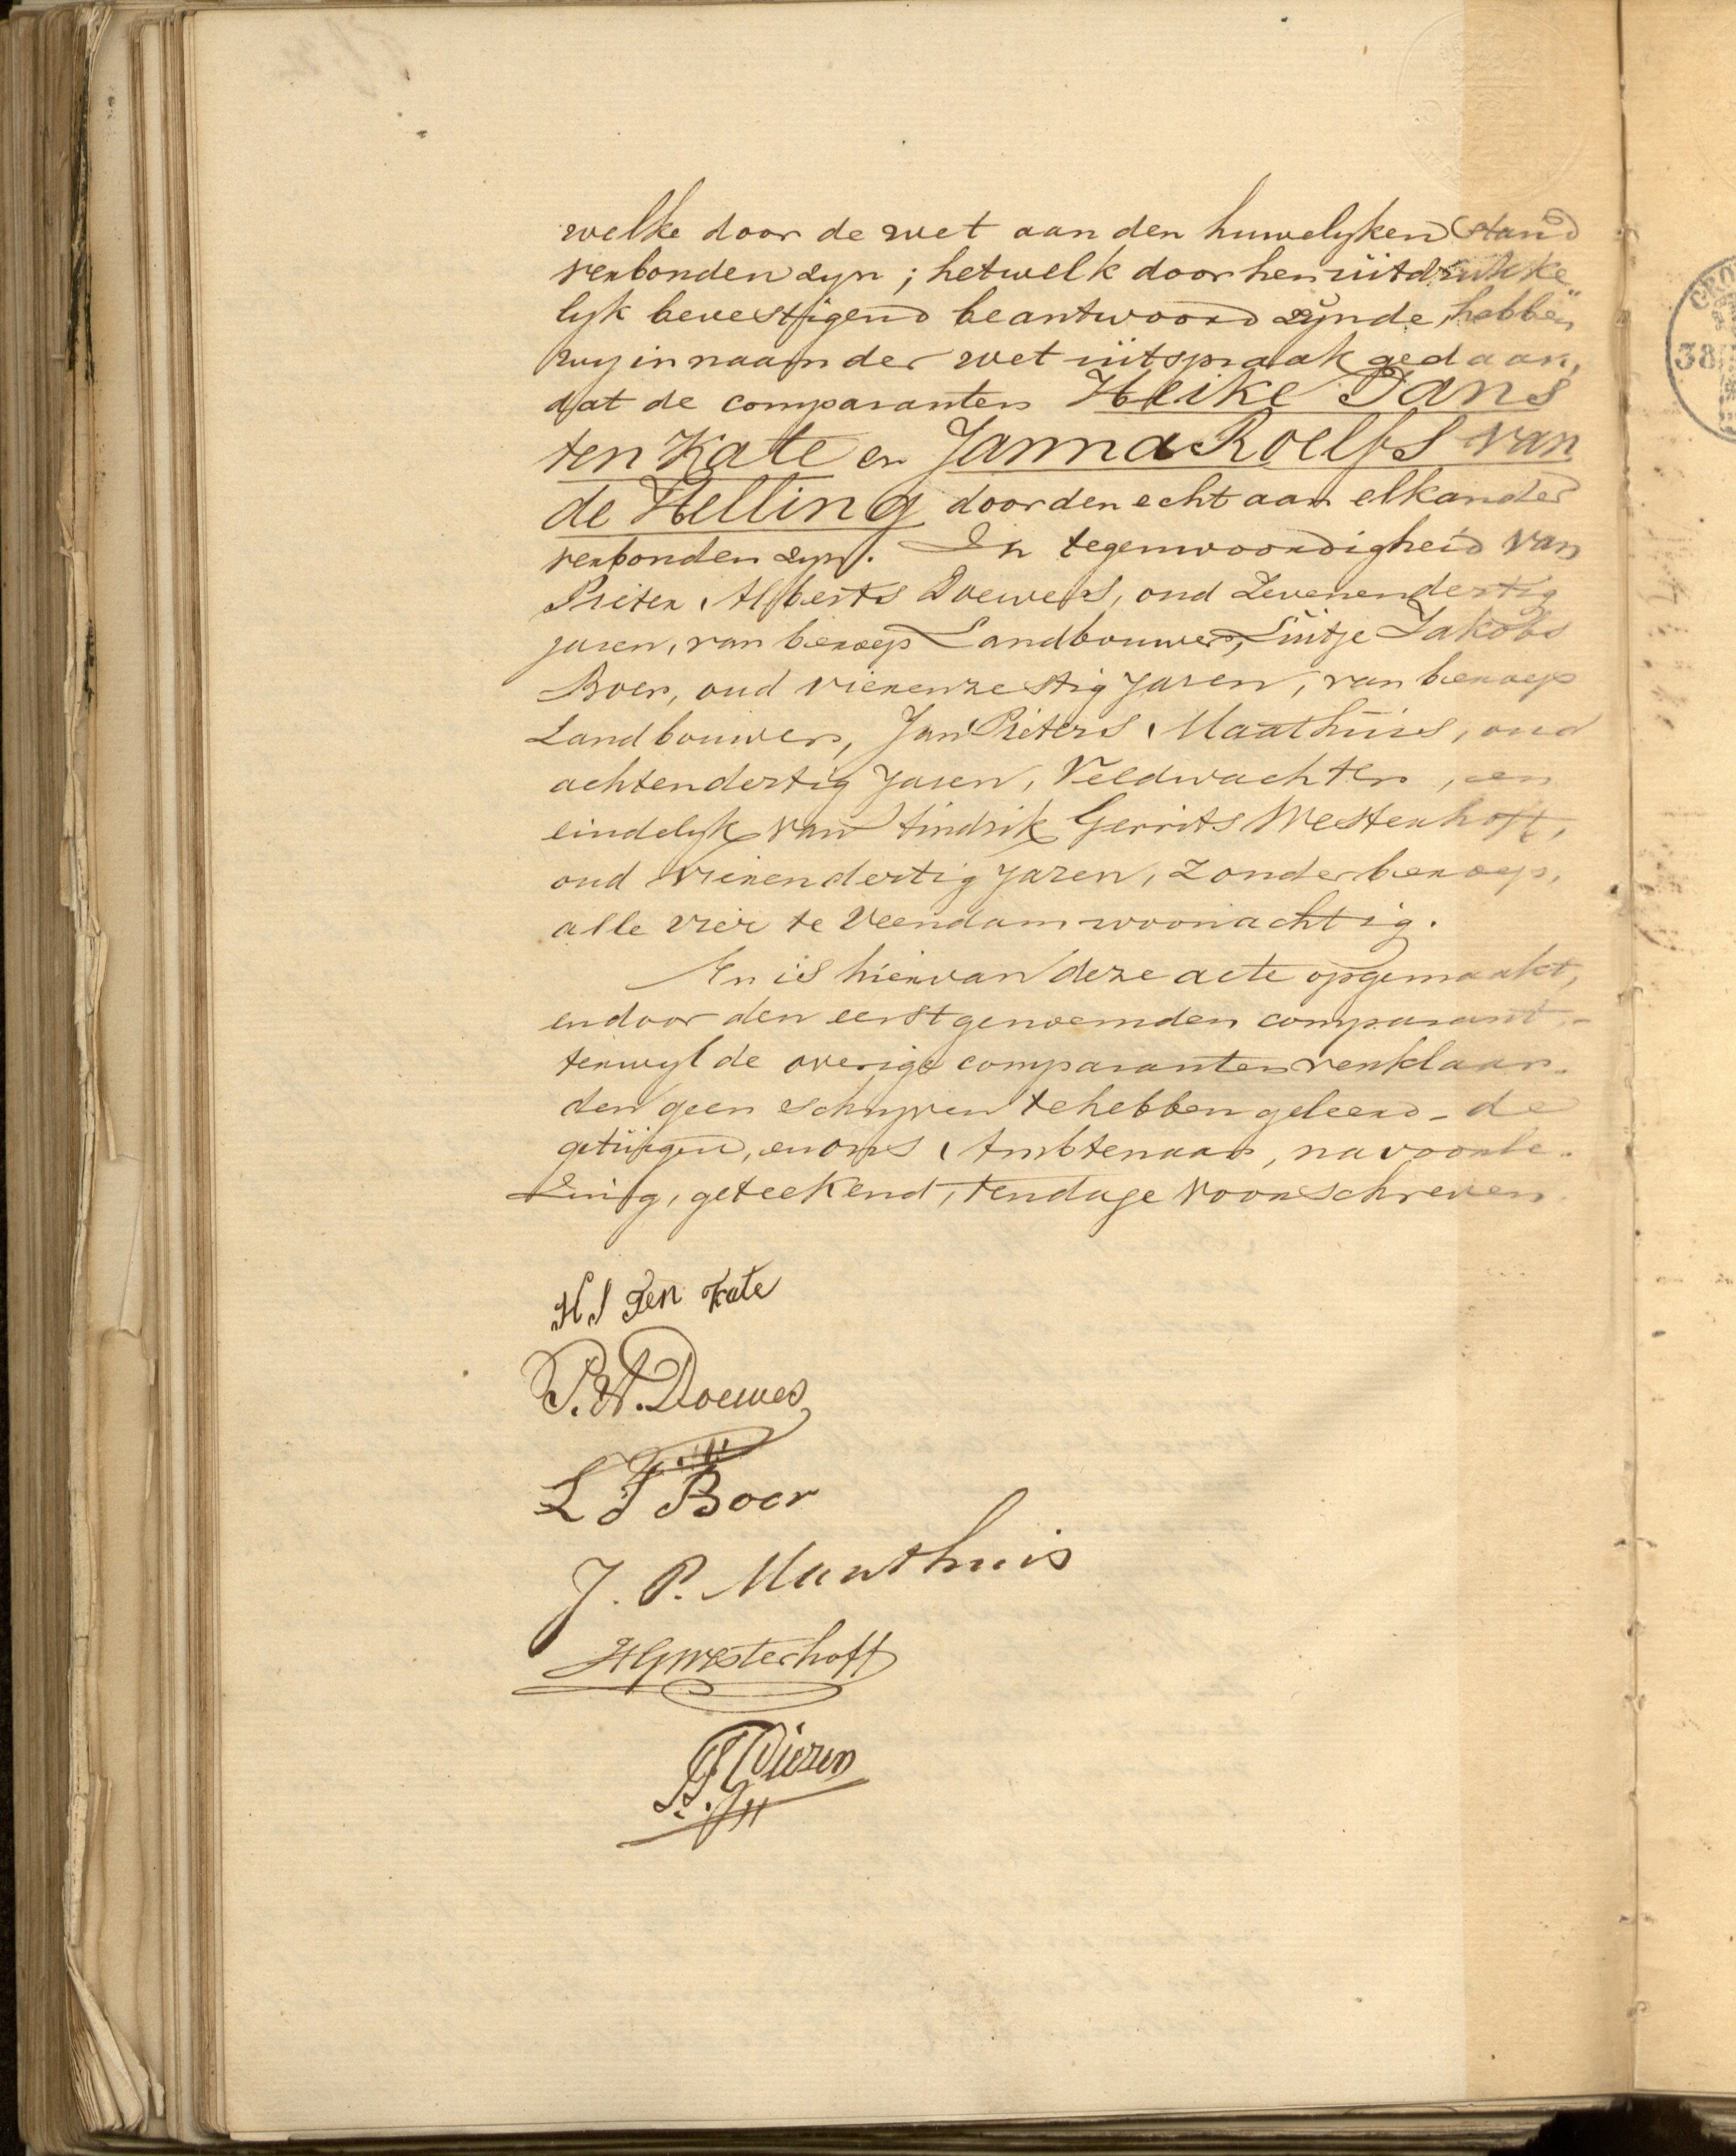 welke door de wet aan den huwelyken stand
verbonden zyn; hetwelk door hen uitdrukke„
lyk bevestigend beantwoord zynde, hebben
wy in naam der wet uitspraak gedaan,
dat de comparanten Heike Jans
ten Kate en Janna Roelfs van
de Helling door den echt aan elkander
verbonden zyn. In tegenwoordigheid van
Pieter Alberts Doewes, oud zevenendertig
jaren, van beroep Landbouwer, Luitje Jakobs
Boer, oud vierenzestig jaren, van beroep
Landbouwer, Jan Pieters Maathuis, oud
achtendertig jaren, Veldwachter, en
eindelyk van Hindrik Gerrits Westerhoff,
oud vierendertig jaren, zonder beroep,
alle vier te Veendam woonachtig.
En is hiervan deze acte opgemaakt,
en door den eerstgenoemden comparant,-
terwyl de overige comparanten verklaar-
den geen schryven te hebben geleerd - de
getuigen, en ons Ambtenaar, na voorle-
zing, geteekend, ten dage voorschreven.
H J Ten Kate
P. A. Doewes
L J Boer
J. P. Maathuis
HGWesterhoff
38